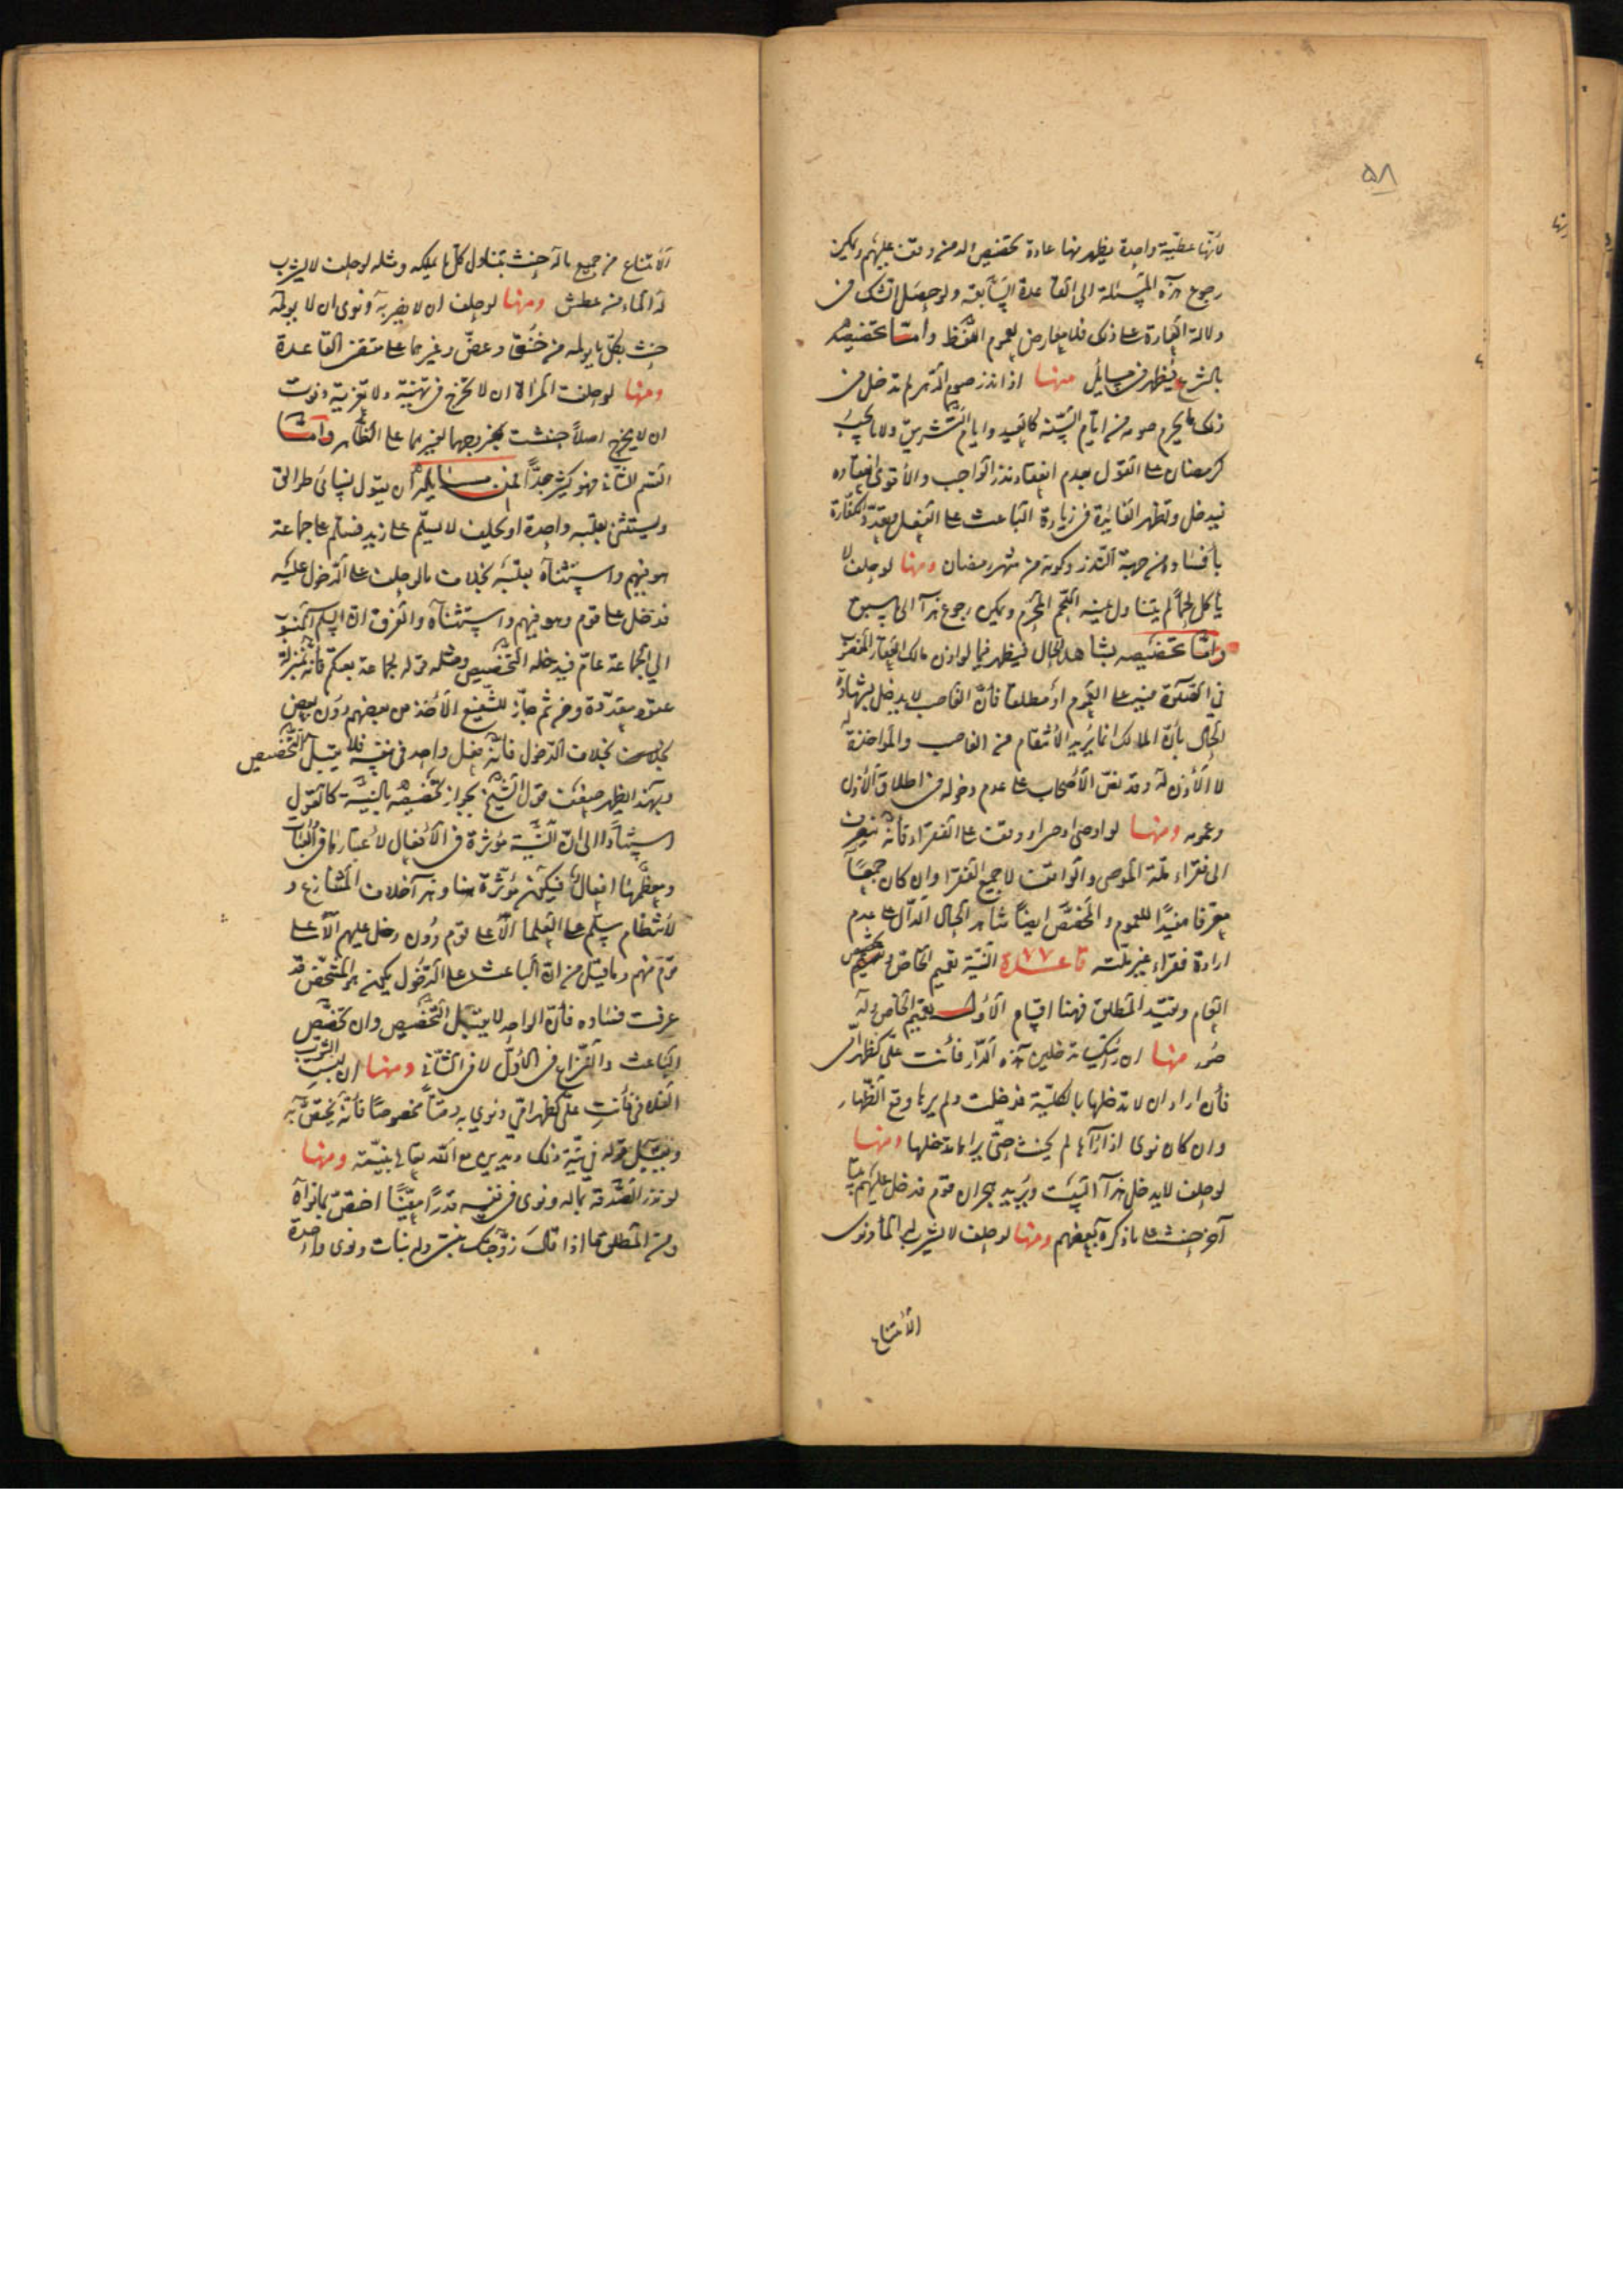 ٥٨
لأنها عطية واحدة يظهر منها عادة تخصيص الدمن وقف عليهم ويمكن
رجوع هذه المسئلة الى القاعدة السابقة ولو حصل الشك في
دلالة العبارة على ذلك فلا يعارض لعموم اللفظ واما تخصيصه
بالشرع فيظهر في مسايل منها اذا نذر صوم الدهر لم تدخل في
ذلك ما يحرم صومه من ايام السنة كالعيد وايام التشريق ولا ما يجب
كرمضان على القول بعدم انعقاد نذر الواجب والأقوى انعقاده
فيدخل وتظهر الفايدة في زيادة الباعث على الفعل وتعدد الكفارة
بافساده من جهة النذر وكونه من شهر رمضان ومنها لو حلف لا
يأكل لحما لم يتناول يمينه اللحم المحرم ويمكن رجوع هذا الى ما سبق
واما تخصيصه بشاهد الحال فيظهر فيما لو اذن مالك العقار المغصوب
في الصلوة فيه على العموم او مطلقا فأن الغاصب لا يدخل بشهادة
الحال بأن المالك انما يريد الأنتقام من الغاصب والمؤاخذة له
لا الأذن له وقد نص الأصحاب على عدم دخوله في اطلاق الأذن
وعمومه ومنها لو اوصى او وقف على الفقراء فأنه ينصرف
الى فقراء ملة الموصي والواقف لا جميع الفقرا وان كان جمعا
معرفا مفيدا للعموم والمخصص ايضا شاهد الحال الدال على عدم
ارادة فقراء غير ملته قاعدة ٧٧ النية تعمم الخاص وتخصص
العام وتقيد المطلق فهنا اقسام الأول تعميم الخاص وله
صور منها ان رأيتك تدخلين هذه الدار فأنت علي كظهر امي
فأن اراد ان لا تدخلها بالكلية فدخلت ولم يرها وقع الظهار
وان كان نوى اذا رآها لم يحنث حتى يراها تدخلها ومنها
لو حلف لا يدخل هذا البيت ويريد هجران قوم فدخل عليهم بيتا
آخر حنث على ما ذكره بعضهم ومنها لو حلف لا يشرب له الماء ونوى
الأمتناع
الأمتناع من جميع ماله حنث بتناول كل ما يملكه ومثله لو حلف لا يشرب
له الماء من عطش ومنها لو حلف ان لا يضربه ونوى ان لا يؤلمه
حنث بكل ما يؤلمه من خنق وعض وغيرهما على مقتضى القاعدة
ومنها لو حلفت المرأة ان لا تخرج في تهنية ولا تعزية ونوت
ان لا يخرج اصلا حنثت بخروجها لغيرهما على الظاهر واما
القسم الثاني فهو كثير جدا فمن مسايله ان يقول نسائي طوالق
ويستثنى بقلبه واحدة او يحلف لا يسلم على زيد فسلم على جماعة
هو فيهم واستثناه بقلبه بخلاف ما لو حلف على الدخول عليه
فدخل على قوم وهو فيهم واستثناه والفرق ان السلم المنسوب
الى الجماعة عام فيدخله التخصيص ومثله قوله لجماعة بعتكم فأنه بمنزلة
عقود متعددة ومن ثم جاز للشفيع الأخذ من بعضهم دون بعض
بخلاف الدخول فأنه فعل واحد في نفسه فلا يقبل التخصيص
وبهذا يظهر ضعف قول الشيخ بجواز تخصيصه بالنية كالقول
استنادا الى ان النية مؤثرة في الأفعال لأعتبارها في العبادات
ومعظمها افعال فيكون مؤثرة هنا وهذا خلاف المتنازع و
لأنتظام سلم على العلما الا على قوم دون دخل عليهم الا على
قوم منهم وما قيل من ان الباعث على الدخول يمكن هو المشخص قد
عرفت فساده فأن الواحد لا يقبل التخصيص وان تخصص
الباعث والنزاع في الأول لا في الثاني ومنها ان لبست الثوب
الفلاني فأنت علي كظهر امي ونوي به وقتا مخصوصا فأنه يختص به
ويقبل قوله في نية ذلك ويدين مع الله تعالى بنيته ومنها
لو نذر الصدقة بماله ونوى في نفسه قدرا معينا اختص بما نواه
ومن المطلق ما اذا قال زوجتك بنتي وله بنات ونوى واحدة